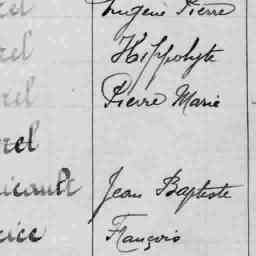 rel Eugène Pierre
rel Hippolyte
rel Pierre Marie
rel
icault Jean Baptiste
cice François